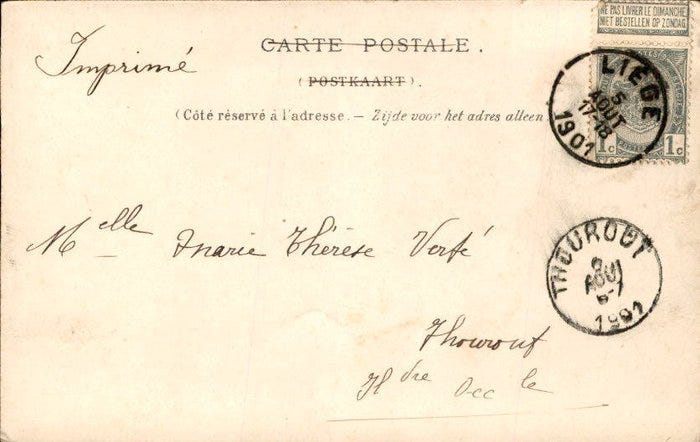 NE PAS LIVRER LE DIMANCHE
NIET BESTELLEN OP ZONDAG
CARTE POSTALE.
Imprimé
(POSTKAART).
(Côté réservé à l'adresse. – Zijde voor het adres alleen
LIÈGE
5
AOUT
17-18
1901
1c 1c
Melle Marie Thérèse Verfé
THOUROUT
AOUT
6-7
1901
Thourout
Fl dre Occ le